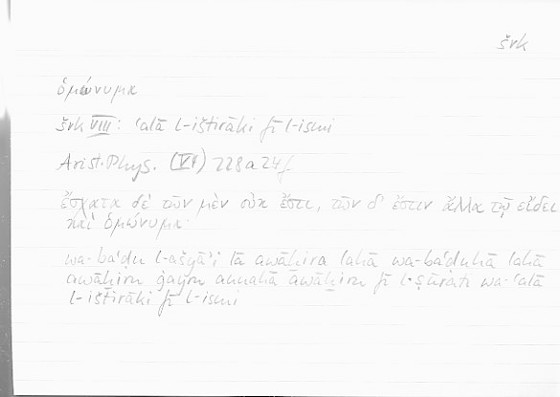 šrk
ὁμώνυμα
šrk VIII: ʿalā l-ištirāki fī l-ismi
Arist. Phys. (VI) 228 a 24 f.
ἔσχατα δὲ τῶν μὲν οὐκ ἔστι, τῶν δ' ἔστιν ἄλλα τῷ εἴδει
καὶ ὁμώνυμα·
wa-baʿdu l-ašyāʾi lā awāḫira lahā wa-baʿduhā lahā
awāḫiru ġayra annahā awāḫiru fī l-ṣūrati wa-ʿalā
l-ištirāki fī l-ismi